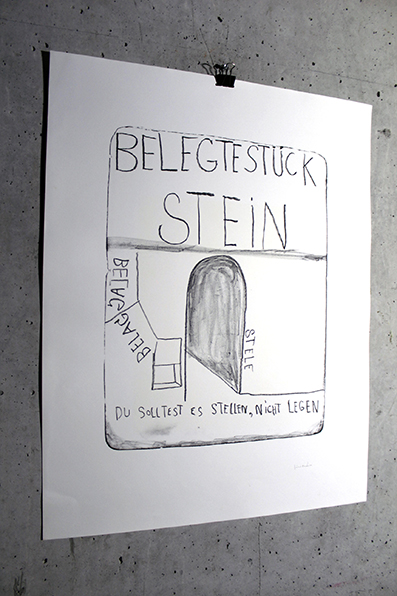 BELEGTESTUCK
STEIN
BELAG
BELAG
STELE
DU SOLLTEST ES STELLEN, NICHT LEGEN